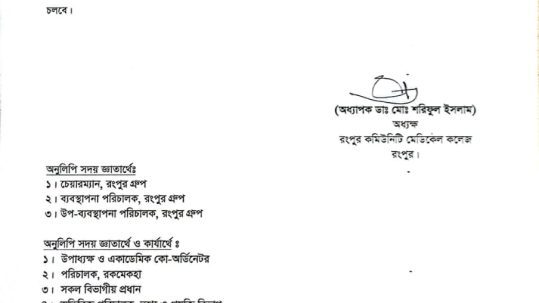 চলবে।
(অধ্যাপক ডাঃ মোঃ শরিফুল ইসলাম)
অধ্যক্ষ
রংপুর কমিউনিটি মেডিকেল কলেজ
রংপুর।
অনুলিপি সদয় জ্ঞাতার্থেঃ
১। চেয়ারম্যান, রংপুর গ্রুপ
২। ব্যবস্থাপনা পরিচালক, রংপুর গ্রুপ
৩। উপ-ব্যবস্থাপনা পরিচালক, রংপুর গ্রুপ
অনুলিপি সদয় জ্ঞাতার্থে ও কার্যার্থে ঃ
১। উপাধ্যক্ষ ও একাডেমিক কো-অর্ডিনেটর
২। পরিচালক, রকমেকহা
৩। সকল বিভাগীয় প্রধান